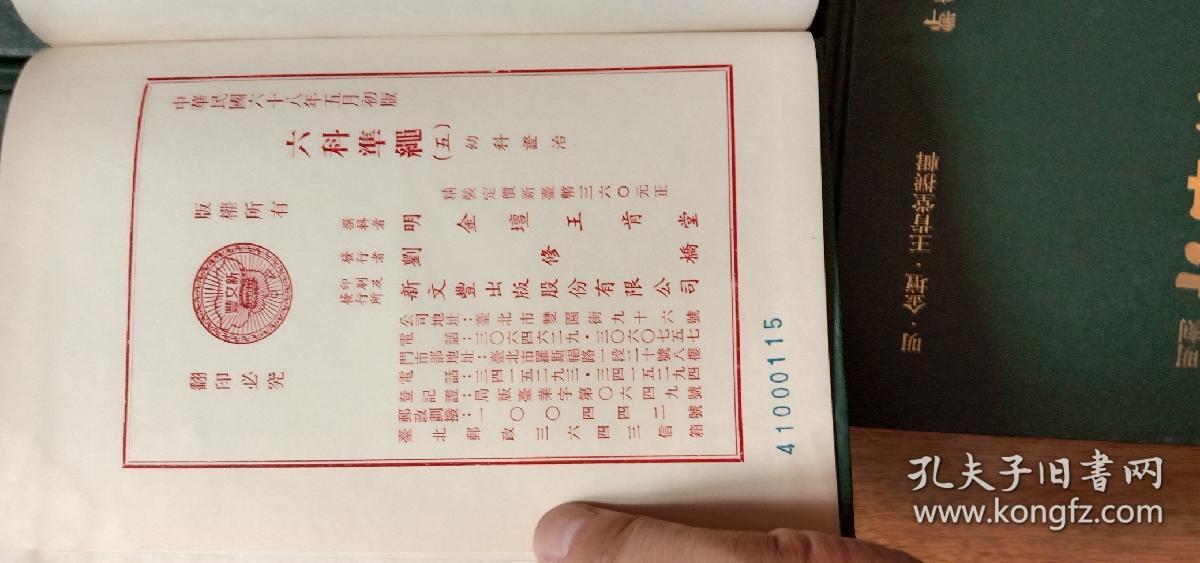 中華民國六十八年五月初版
六科準繩(五)幼科證治
精裝定價新臺幣三六〇元正
版權所有
翻印必究
撰科者 明 金壇王肯堂
發行者 劉修橋
發行及印刷所 新文豐出版股份有限公司
公司地址：臺北市雙園街九十六號
電話：三〇六四六二九・三〇六〇七五七
門市部地址：臺北市羅斯福路一段二十號八樓
電話：三四一五二九三・三四一五二九四
登記證：局版臺業字第〇六四九號
郵政劃撥：一〇〇四四二號
臺北郵政三六四三信箱
新文豐
41000115
明・金壇・王肯堂撰輯
孔夫子旧书网
www.kongfz.com